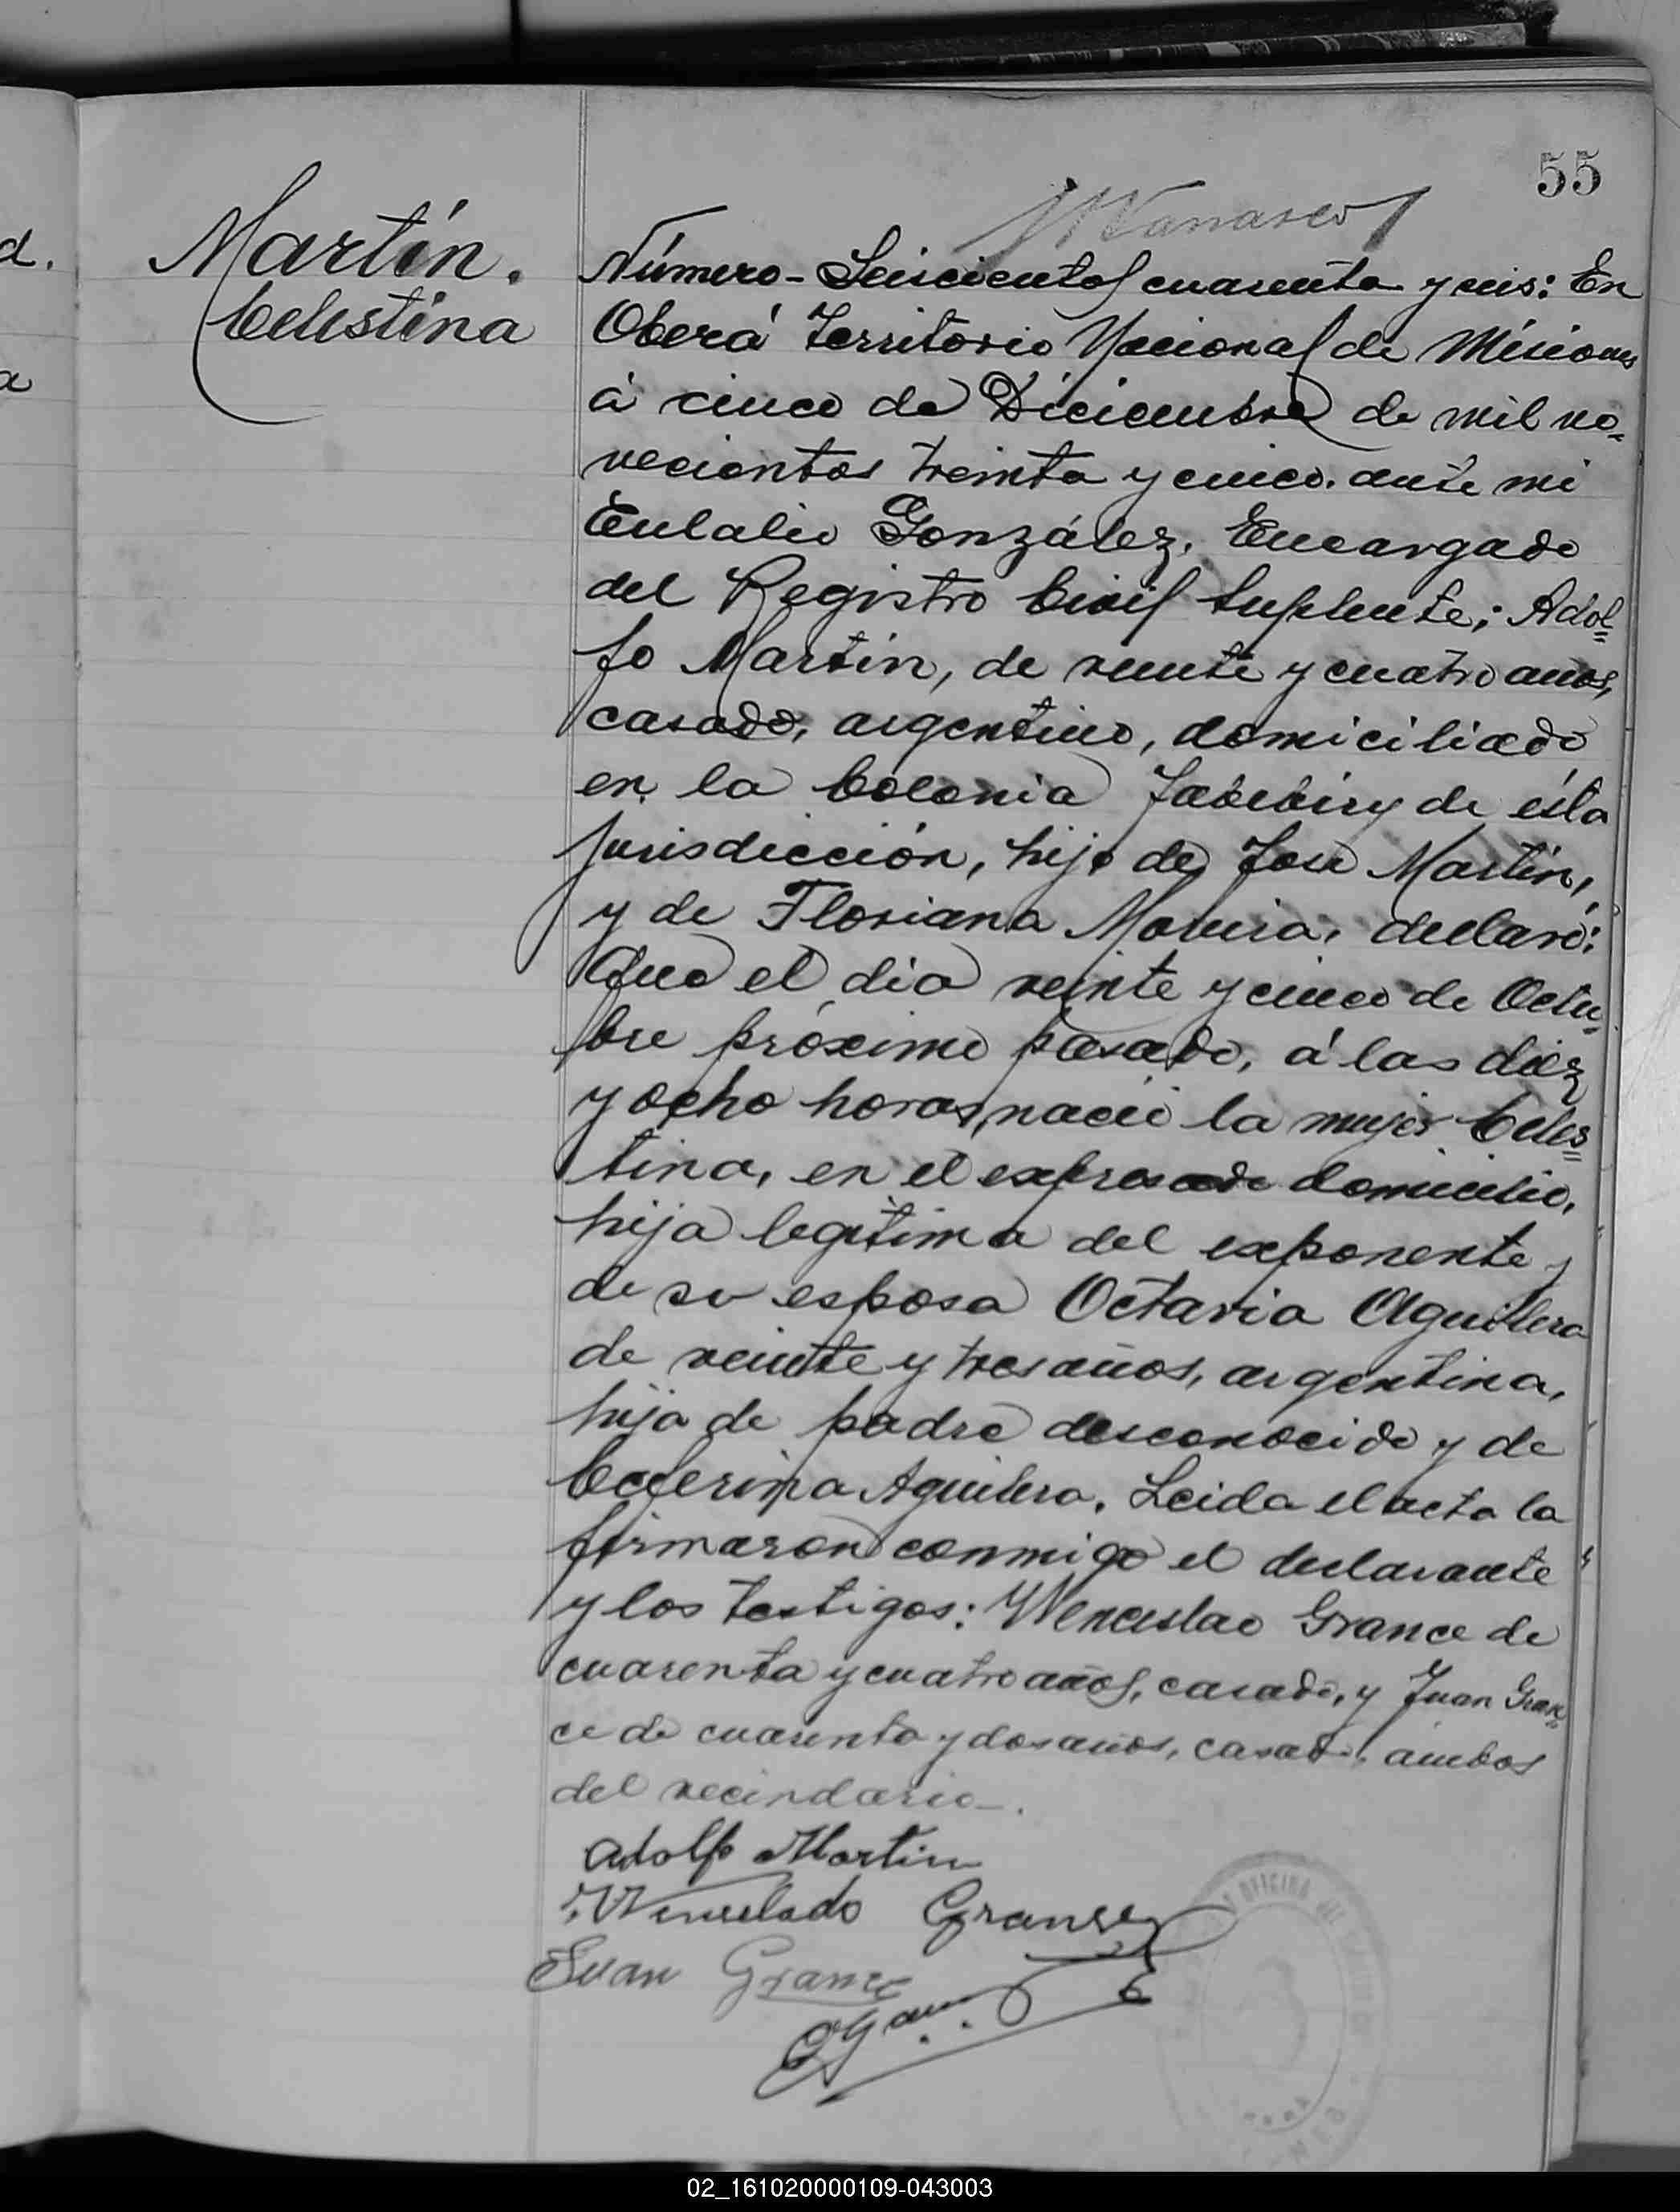 55
Martín.
Celestina
Número - Seiscientos cuarenta y seis: En
Oberá Territorio Nacional de Misiones
á cinco de Diciembre de mil no-
vecientos treinta y cinco. ante mi
Eulalio González, Encargado
del Registro Civil Suplente; Adol-
fo Martín, de veinte y cuatro años,
casado, argentino, domiciliado
en la Colonia Yabebiry de ésta
jurisdicción, hijo de José Martín,
y de Floriana declaró:
Que el día veinte y cinco de Octu-
bre próximo pasado, á las diez
y ocho horas, nació la mujer Celes-
tina, en el expresado domicilio,
hija legítima del exponente y
de su esposa Octavia Aguilera
de veinte y tres años, argentina,
hija de padre desconocido y de
Ceferina Aguilera. Leida el acta la
firmaron conmigo el declarante
y los testigos: Wenceslao Grance de
cuarenta y cuatro años, casado, y Juan Gran-
ce de cuarenta y dos años, casado, ambos
del vecindario.
Adolfo Martin
Wenselado Granse
Juan Grance
OFICINA
02_161020000109-043003